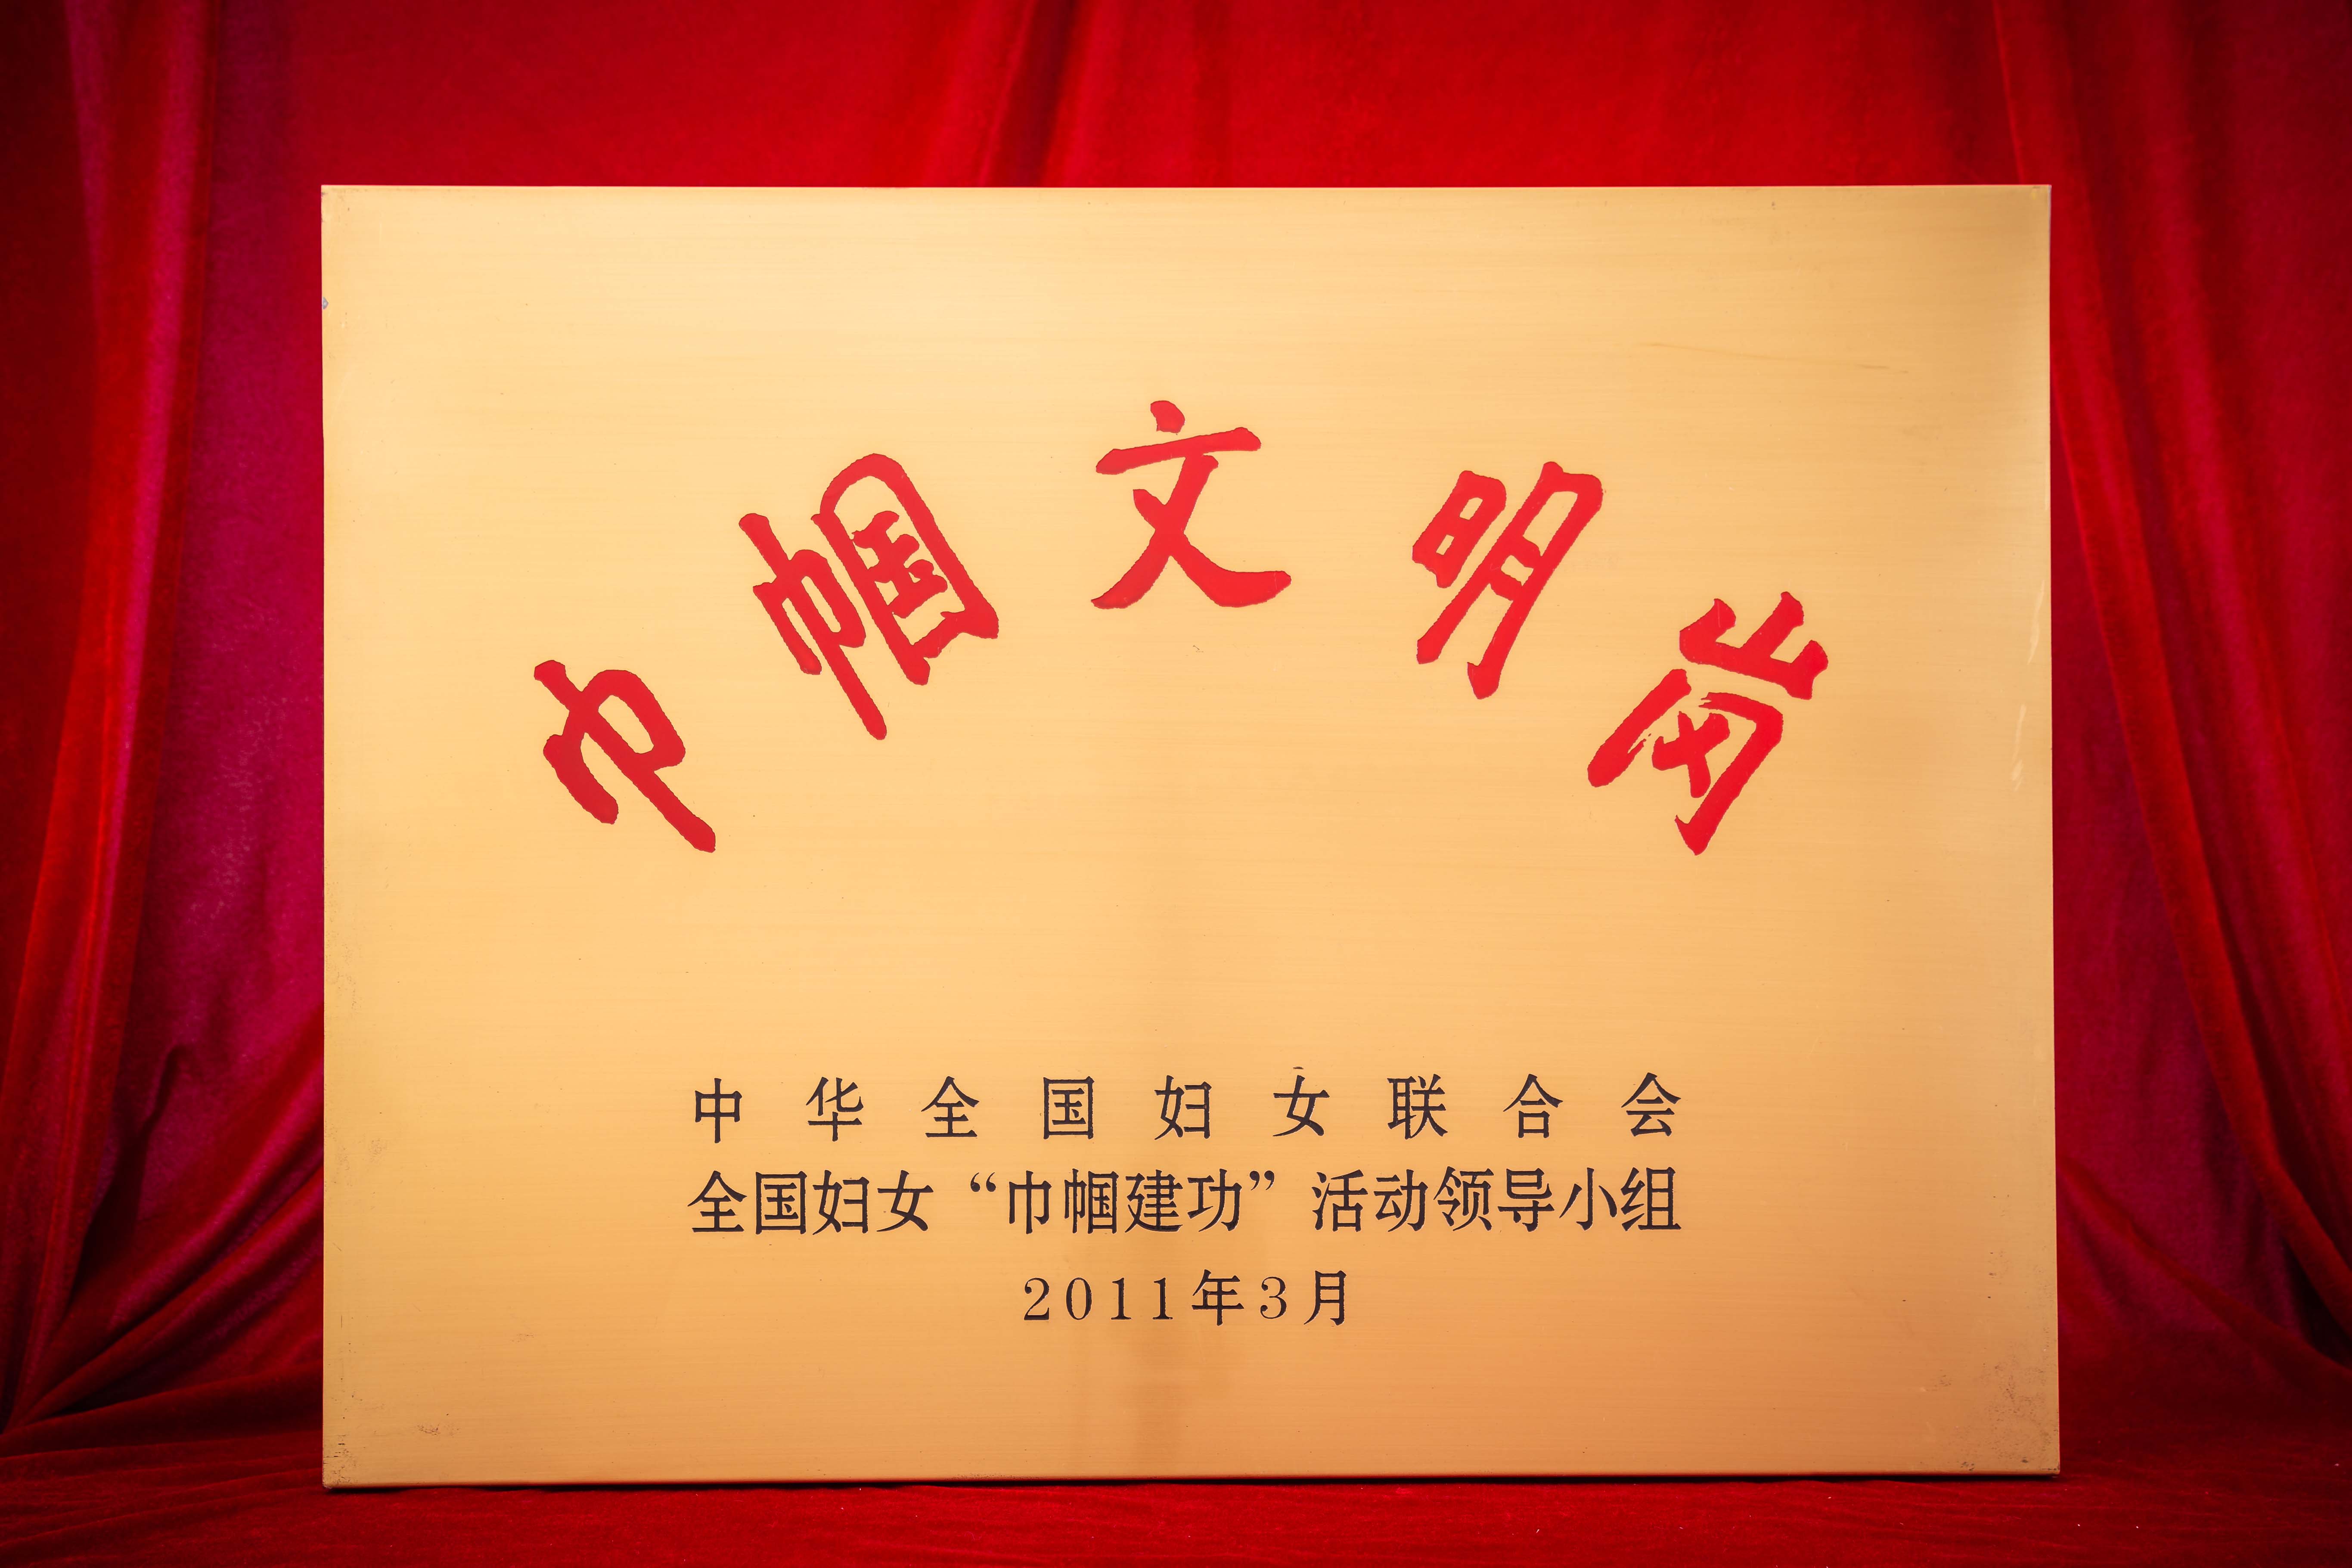 巾帼文明岗
中华全国妇女联合会
全国妇女“巾帼建功”活动领导小组
2011年3月